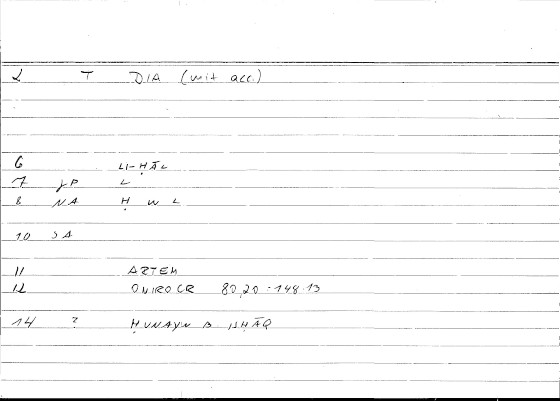 2 T DIA (wit acc.)
6 LI-ḤĀL
7 γP L
8 NA Ḥ W L
10 SA
11 ARTEM
12 ONIROCR 80,20 - 148.13
14 ? ḤUNAYN B ISḤĀQ